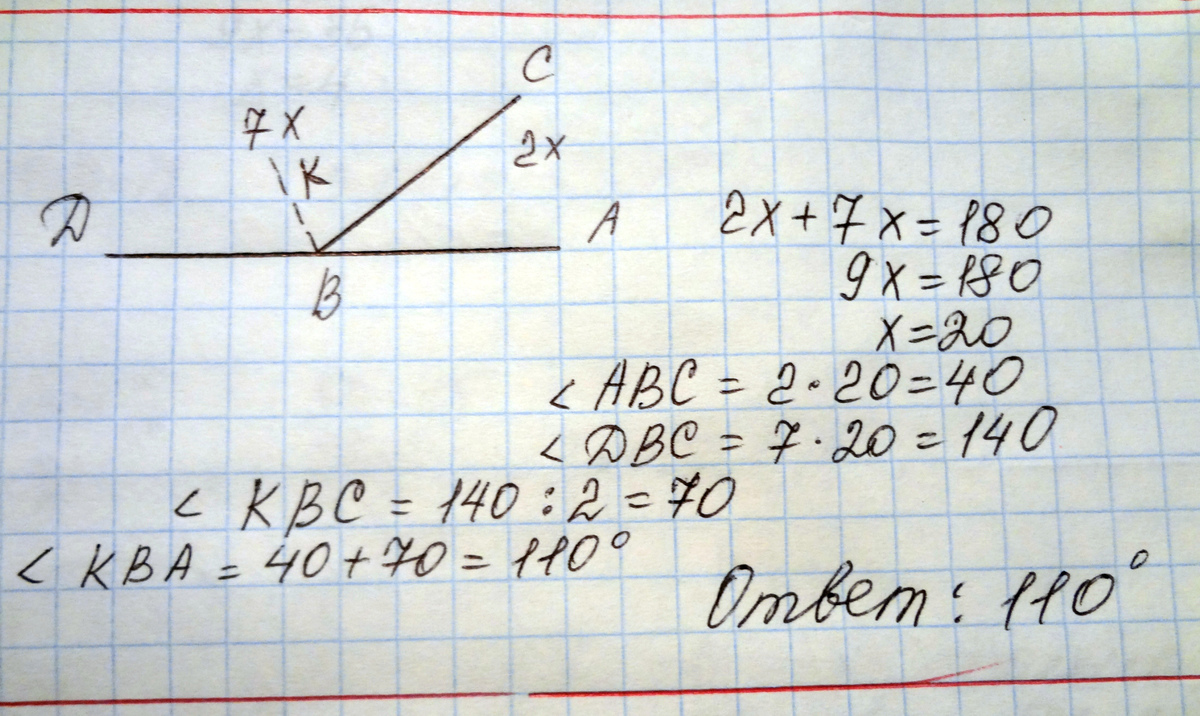 C
7x
K
2x
D
A
B
2x+7x=180
9x=180
x=20
< ABC = 2·20=40
< DBC = 7·20=140
< KBC = 140:2=70
< KBA = 40+70=110°
Ответ: 110°